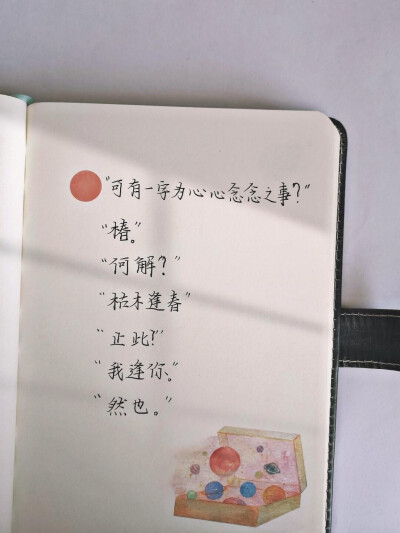 “可有一字为心心念念之事?”
“椿。”
“何解?”
“枯木逢春”
“止此?”
“我逢你。”
“然也。”